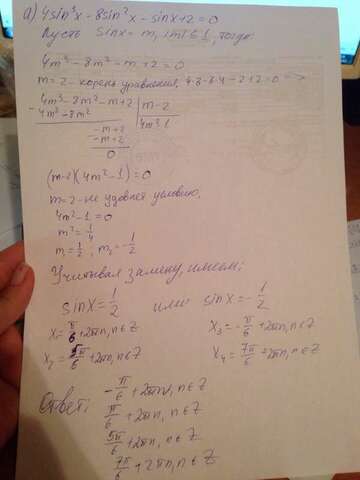 а) 4sin³x - 8sin²x - sinx + 2 = 0
Пусть sinx = m, |m| ≤ 1, тогда:
4m³ - 8m² - m + 2 = 0
m = 2 - корень уравнения, 4·8-8·4-2+2=0 =>
- 4m³ - 8m² - m + 2 | m - 2
4m³ - 8m² | 4m²-1
- m +2
- m + 2
0
(m-2)(4m²-1) = 0
m = 2 - не удовлет. условию.
4m² - 1 = 0
m² = 1/4
m₁ = 1/2 ; m₂ = -1/2
Учитывая замену, имеем:
sinx = 1/2 или sinx = -1/2
x₁ = π/6 + 2πn, n∈Z x₃ = -π/6 + 2πn, n∈Z
x₂ = 5π/6 + 2πn, n∈Z x₄ = 7π/6 + 2πn, n∈Z
Ответ: -π/6 + 2πn, n∈Z
π/6 + 2πn, n∈Z
5π/6 + 2πn, n∈Z
7π/6 + 2πn, n∈Z